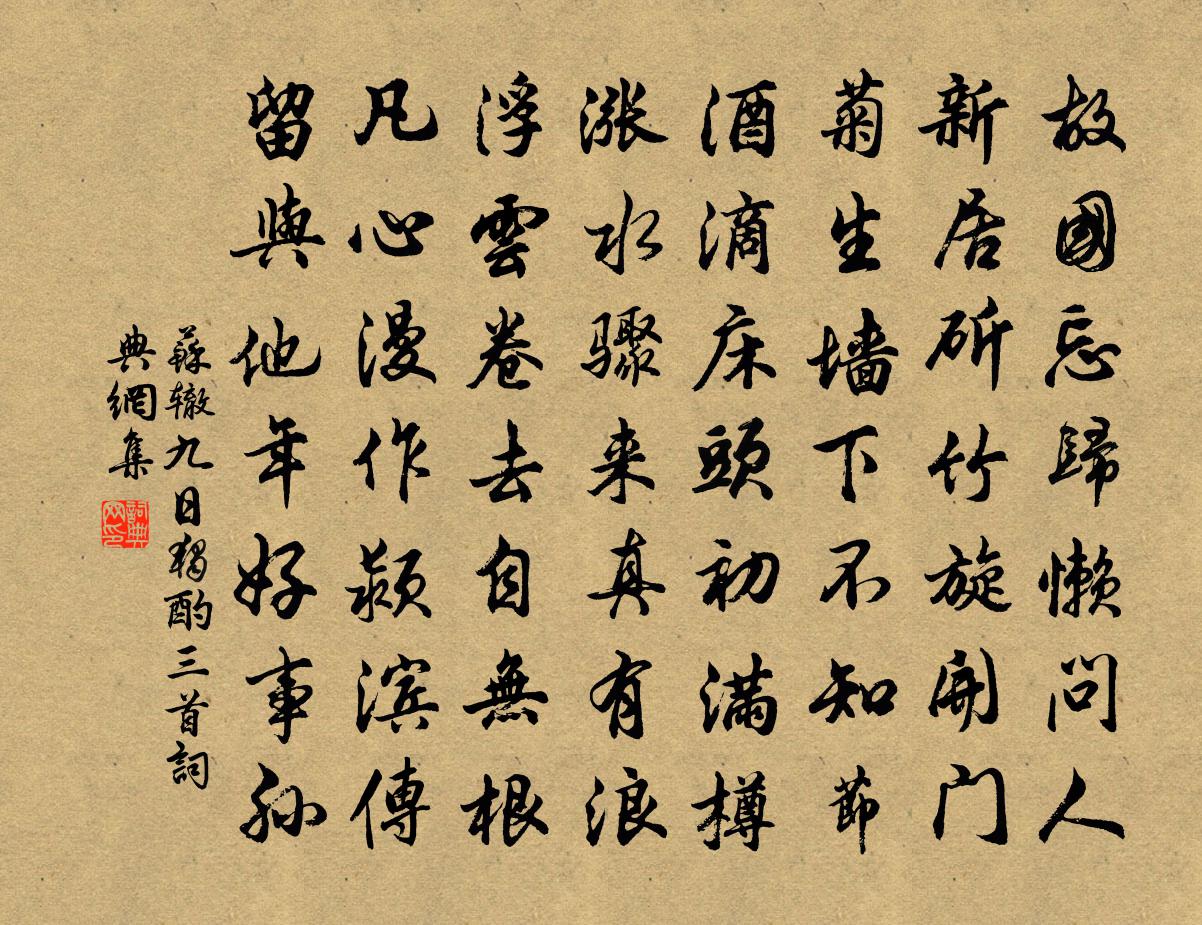 故國忘歸懶問人
新居斫竹旋開门
菊生墙下不知節
酒滴床頭初滿樽
漲水骤来真有浪
浮雲卷去自無根
凡心漫作潁滨傳
留與他年好事孙
蘇辙九日獨酌三首詞
典網集
詞典
网印